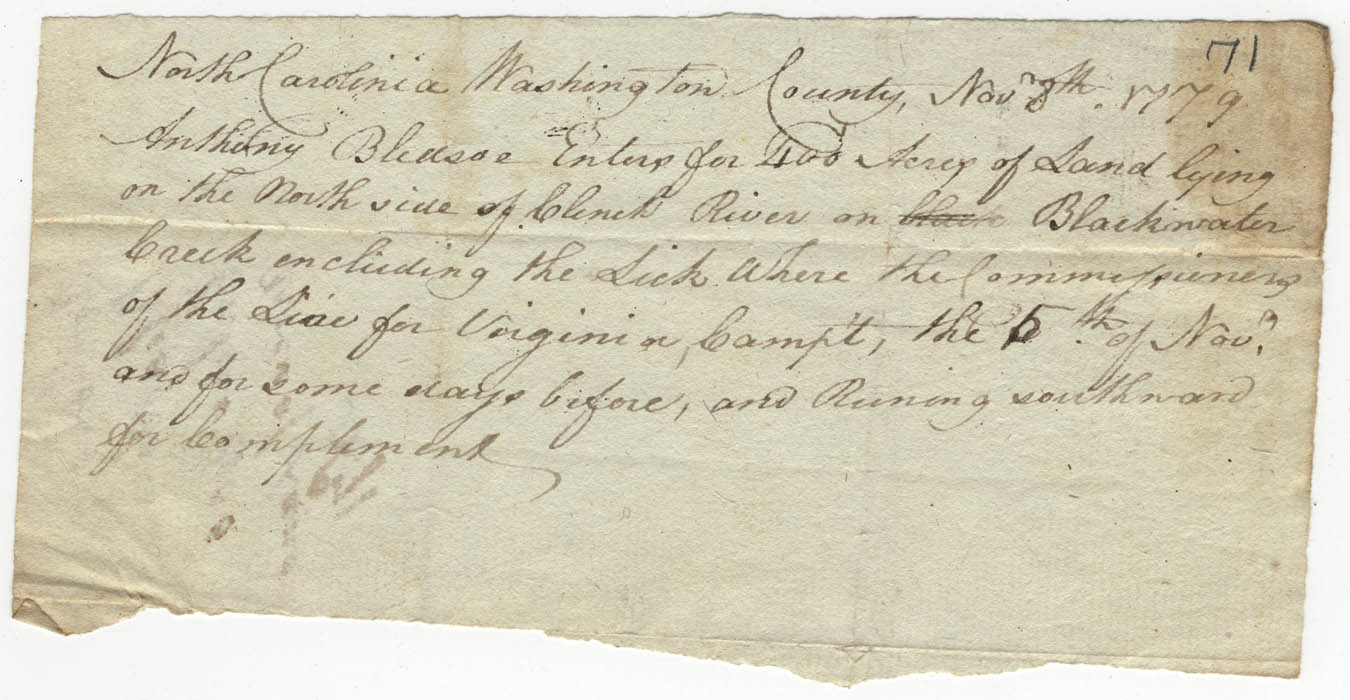 71
North Carolinia Washington County, Novr 8th. 1779
Anthony Bledsoe Enters for 400 Acres of Land lying
on the North side of Clinch River on Blackwater
Creek encluding the Lick Where the Commissioners
of the Line for Virginia, Campt, the 5th. of Novr.
and for some days before, and Runing southward
for Complement